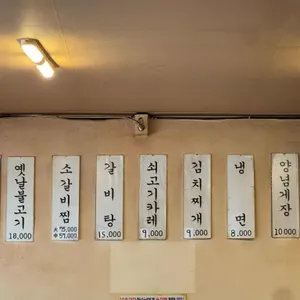 옛날불고기
18,000
소갈비찜
大 75,000
中 57,000
갈비탕
15,000
쇠고기카레
9,000
김치찌개
9,000
냉면
8,000
양념게장
10000